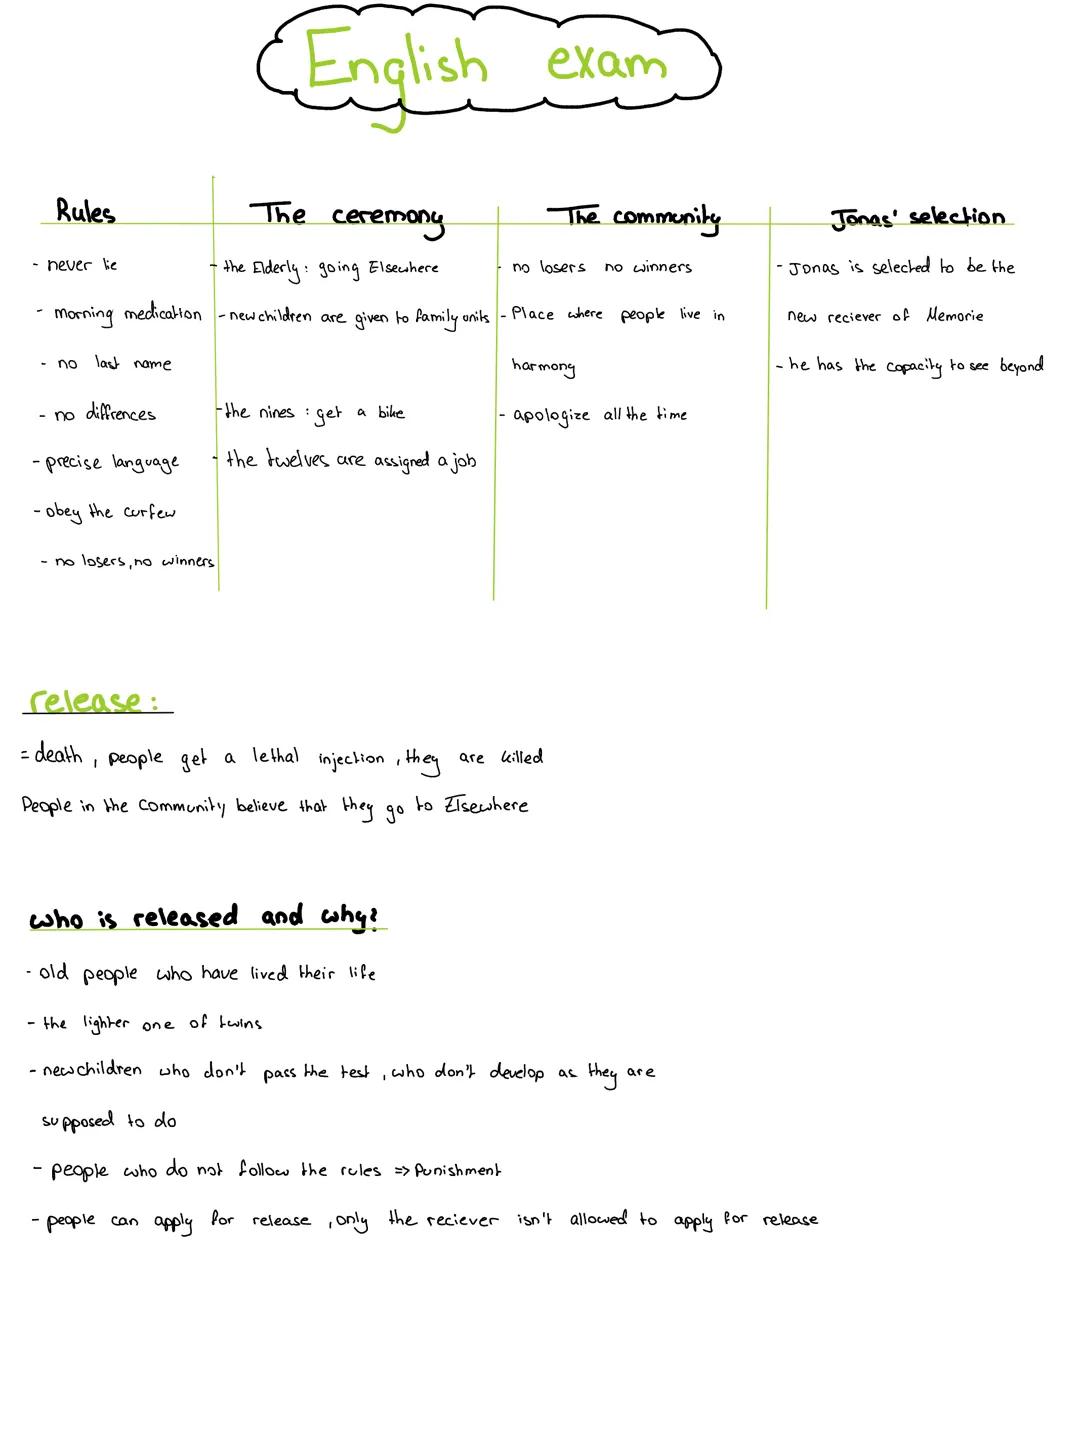 English exam
Rules
- never lie
- morning medication
- no last name
- no diffrences
- precise language
- obey the curfew
- no losers, no winners
The ceremony
- the Elderly: going Elsewhere
- newchildren are given to family units
- the nines: get a bike
- the twelves are assigned a job
The community
- no losers no winners
- Place where people live in
harmony
- apologize all the time
Jonas' selection
- Jonas is selected to be the
new reciever of Memorie
- he has the capacity to see beyond
release:
= death, people get a lethal injection, they are killed
People in the Community believe that they go to Elsewhere
who is released and why?
- old people who have lived their life
- the lighter one of twins
- newchildren who don't pass the test, who don't develop as they are
supposed to do
- people who do not follow the rules => Punishment
- people can apply for release, only the reciever isn't allowed to apply for release